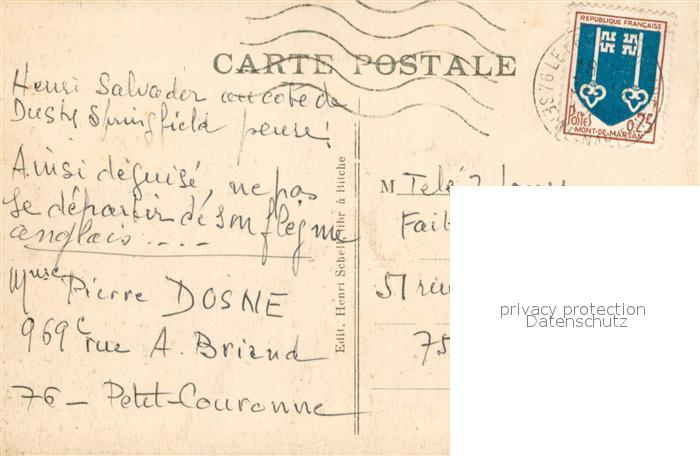 CARTE POSTALE
REPUBLIQUE FRANÇAISE
POSTES
0,25
MONT-DE-MARSAN
Henri Salvador au coté de
Dusty Springfield pense!
Ainsi déguisé, ne pas
se départir de son flègme
anglais....
Pierre DOSNE
969 c rue A. Briand
76 - Petit-Couronne
Edit. Henri Schell à Bitche
M Télé 7 Jours
51 rue
75
privacy protection
Datenschutz